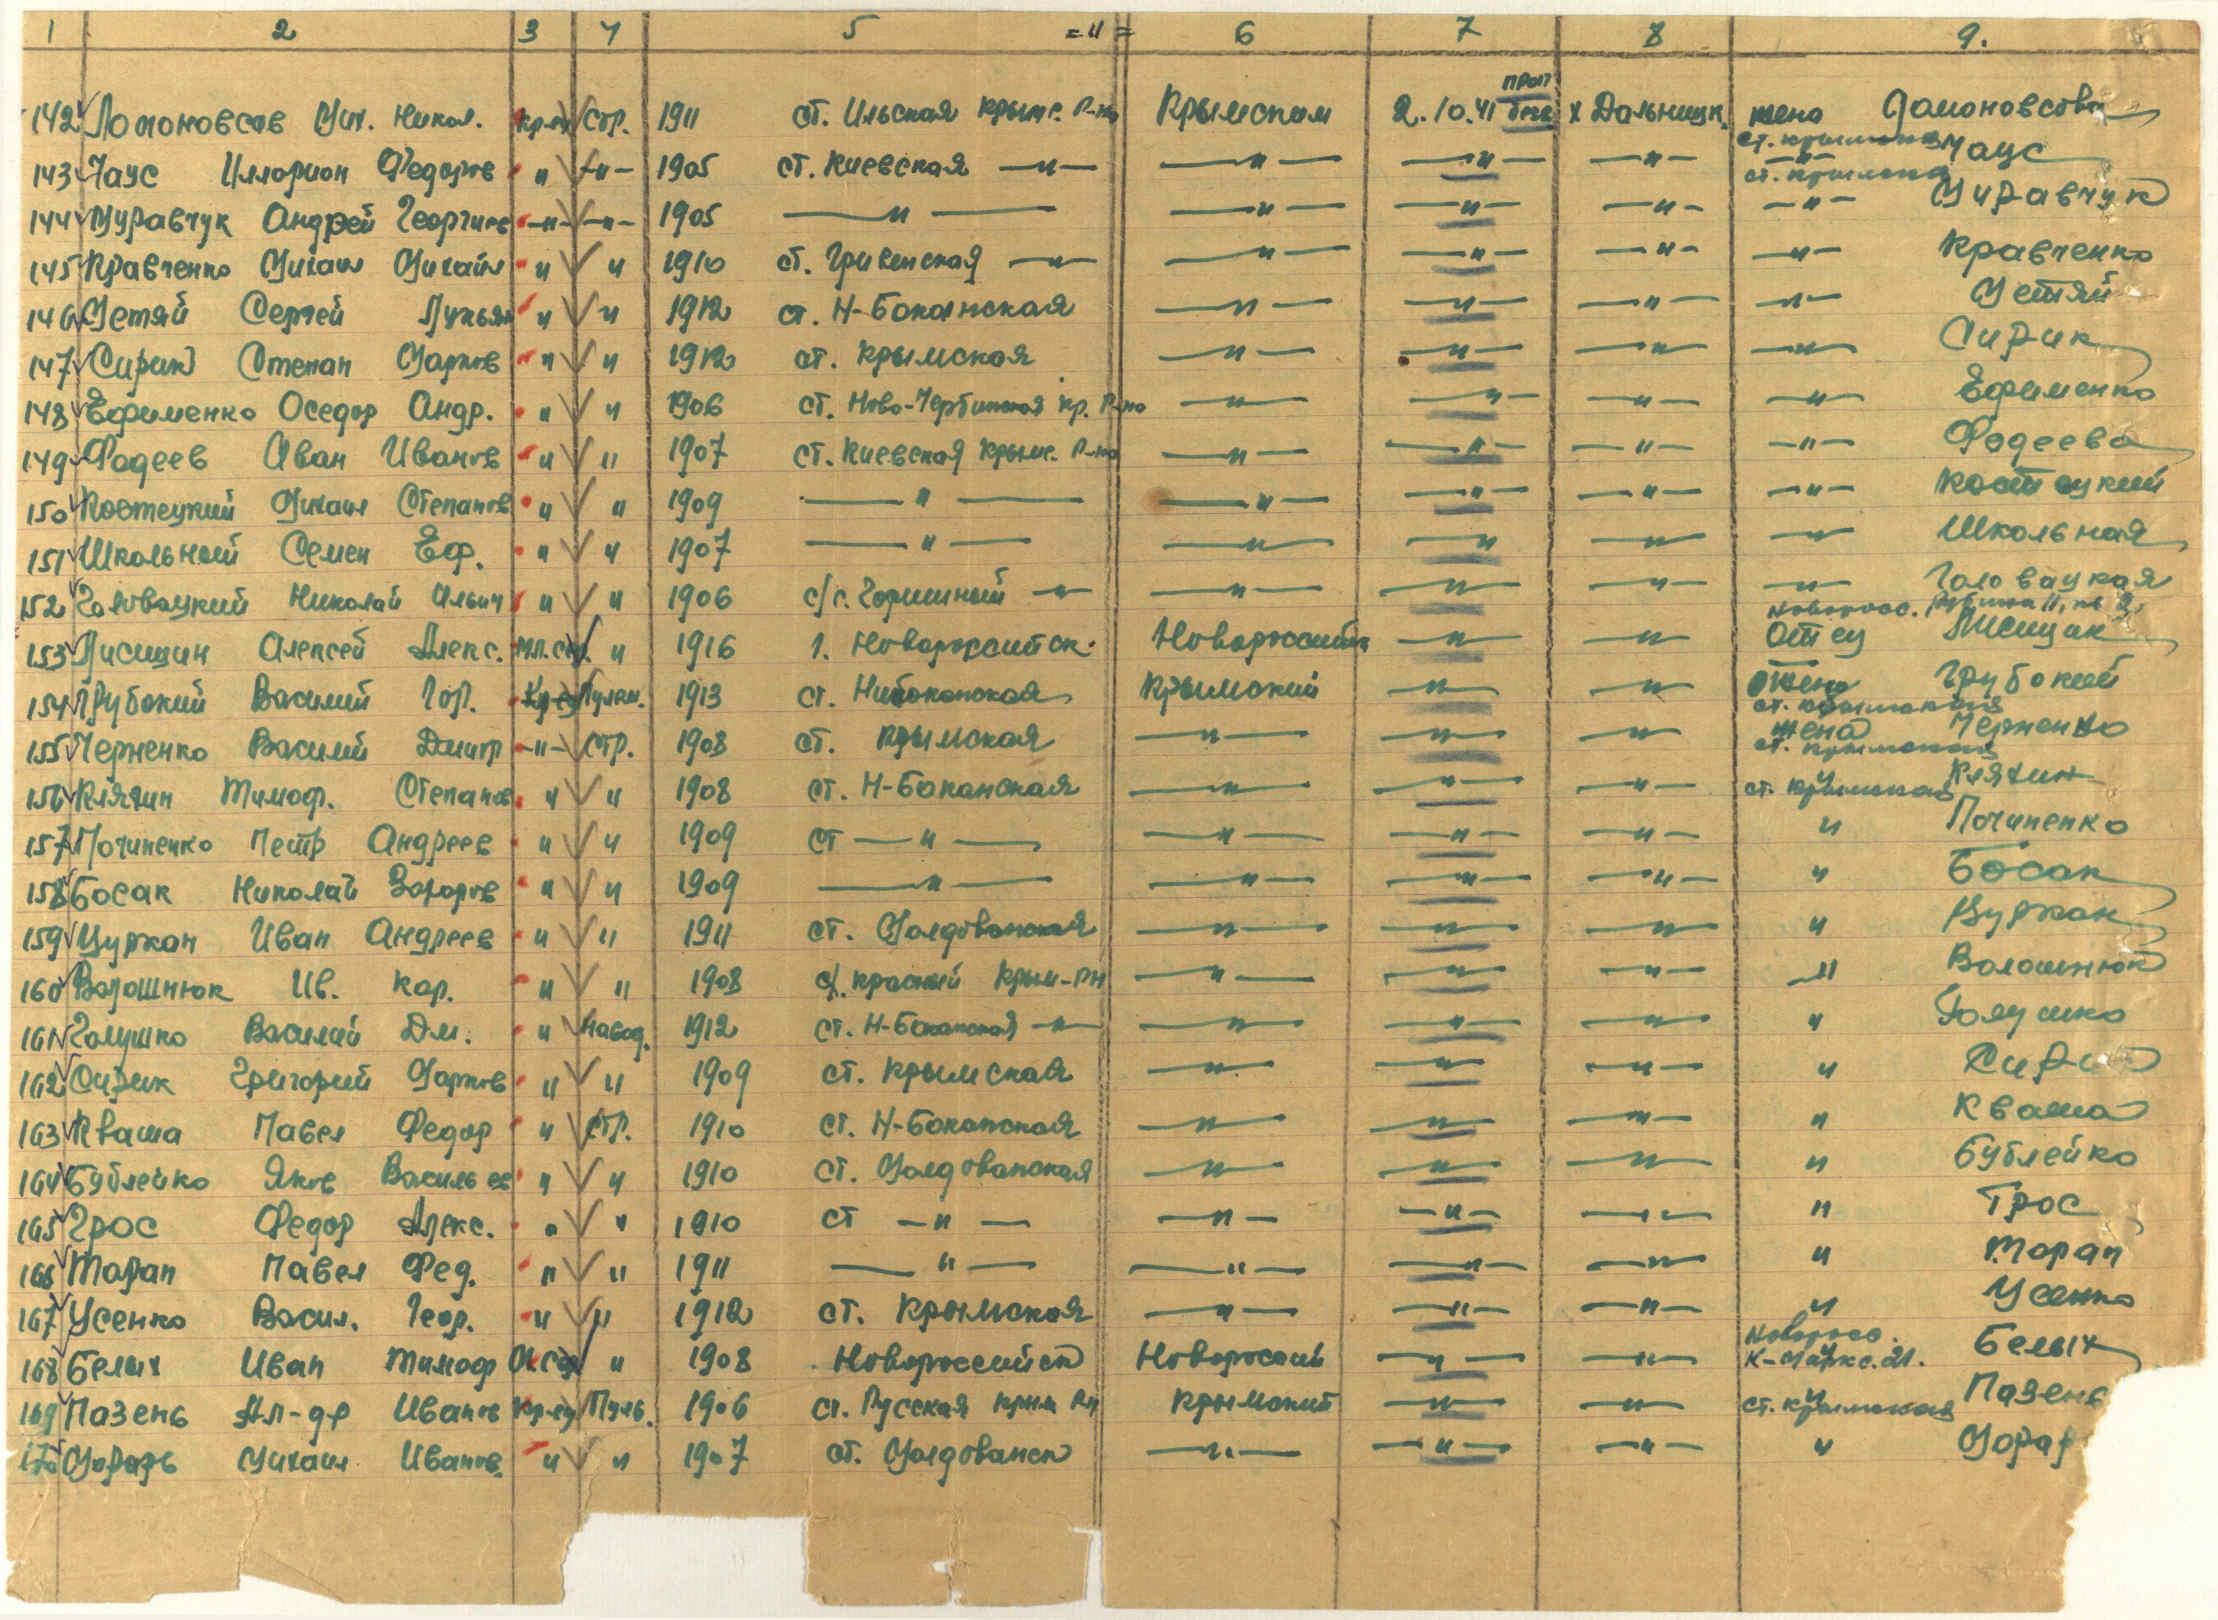 1 2 3 4 5 = " = 6 7 8 9.
142 Ломоновсов Мих. Никол. кр-ц стр. 1911 ст. Ильская Крымс. р-на Крымским 2.10.41 проп х Дальницк. жена Ломоновсова
ст. крымская
143 Чаус Илларион Федоров " —"— 1905 ст. Киевская —"— —"— —"— —"— —"— Чаус
ст. крымская
144 Муравчук Андрей Георгиев —"— —"— 1905 —"— —"— —"— —"— —"— Муравчук
145 Кравченко Михаил Михайл " " 1910 ст. Гривенская —"— —"— —"— —"— —"— Кравченко
146 Метяй Сергей Лукьян " " 1912 ст. Н-Баканская —"— —"— —"— —"— Метяй
147 Сирик Степан Марков " " 1912 ст. Крымская —"— —"— —"— —"— Сирик
148 Ефименко Феодор Андр. " " 1906 ст. Ново- Кр. р-на —"— —"— —"— —"— Ефименко
149 Фадеев Иван Иванов " " 1907 ст. Киевская Крымс. р-на —"— —"— —"— —"— Фадеева
150 Костецкий Михаил Степанов " " 1909 —"— —"— —"— —"— —"— Костецкий
151 Школьный Семен Еф. " " 1907 —"— —"— —"— —"— —"— Школьная
152 Головацкий Николай Ильич " " 1906 с/с. Горишный —"— —"— —"— —"— —"— Головацкая
Новоросс.
153 Лисицин Алексей Алекс. мл. с-т. " 1916 г. Новороссийск Новороссийск —"— —"— Отец Лисицин
154 Грубокий Василий Гор. Кр-ц Пулем. 1913 ст. Нибаканская Крымский —"— —"— жена Грубокий
ст. крымская
155 Черненко Василий Дмитр —"— стр. 1908 ст. Крымская —"— —"— —"— жена Черненко
ст. крымская
156 Кляхин Тимоф. Степанов " " 1908 ст. Н-Баканская —"— —"— —"— " Кляхин
ст. крымская
157 Почипенко Петр Андреев " " 1909 ст —"— —"— —"— —"— " Почипенко
158 Босак Николай " " 1909 —"— —"— —"— —"— " Босак
159 Цуркан Иван Андреев " " 1911 ст. Молдованская —"— —"— —"— " Цуркан
160 Волошнюк Ив. Кар. " " 1908 с/. красный Крым-рн —"— —"— —"— —"— Волошнюк
161 Галушко Василий Дм. " Навод. 1912 ст. Н-Баканская —"— —"— —"— —"— " Галушко
162 Сирик Григорий Марков " " 1909 ст. Крымская —"— —"— —"— " Сирик
163 Кваша Павел Федор " стр. 1910 ст. Н-Баканская —"— —"— —"— " Кваша
164 Бублейко Яков Васильев " " 1910 ст. Молдованская —"— —"— —"— " Бублейко
165 Грос Федор Алекс. " " 1910 ст —"— —"— —"— —"— " Грос
166 Таран Павел Фед. " " 1911 —"— —"— —"— —"— " Таран
167 Усенко Васил. Геор. " " 1912 ст. Крымская —"— —"— —"— " Усенко
168 Белых Иван Тимоф " 1908 Новороссийск Новоросий —"— —"— Новоросс. Белых
К-Маркс. 21.
169 Пазень Ал-др Иванов кр-ц Пуль. 1906 ст. Русская Крым рн Крымский —"— —"— " Пазень
ст. крымская
170 Морарь Михаил Иванов " " 1907 ст. Молдованск —"— —"— —"— " Морар